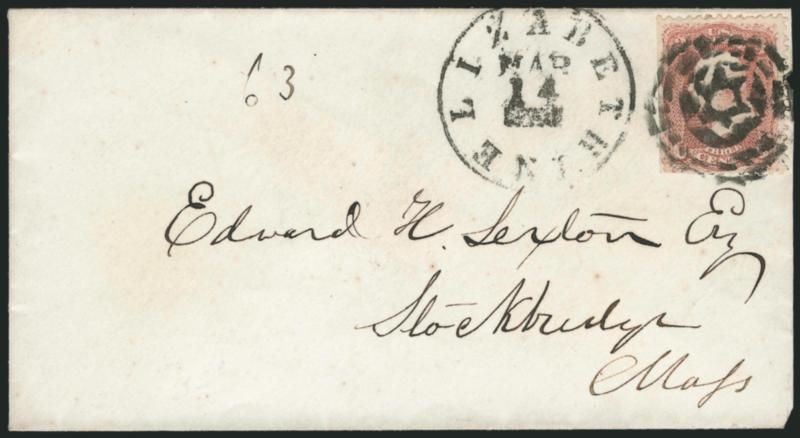 ELIZABETH N.J.
MAR
14
63
Edward H. Sexton Esq
Stockbridge
Mass